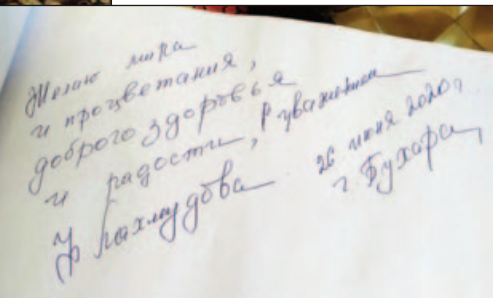 Желаю мира
и процветания,
доброго здоровья
и радости, с уважением
26 июня 2020 г
г Бухара,